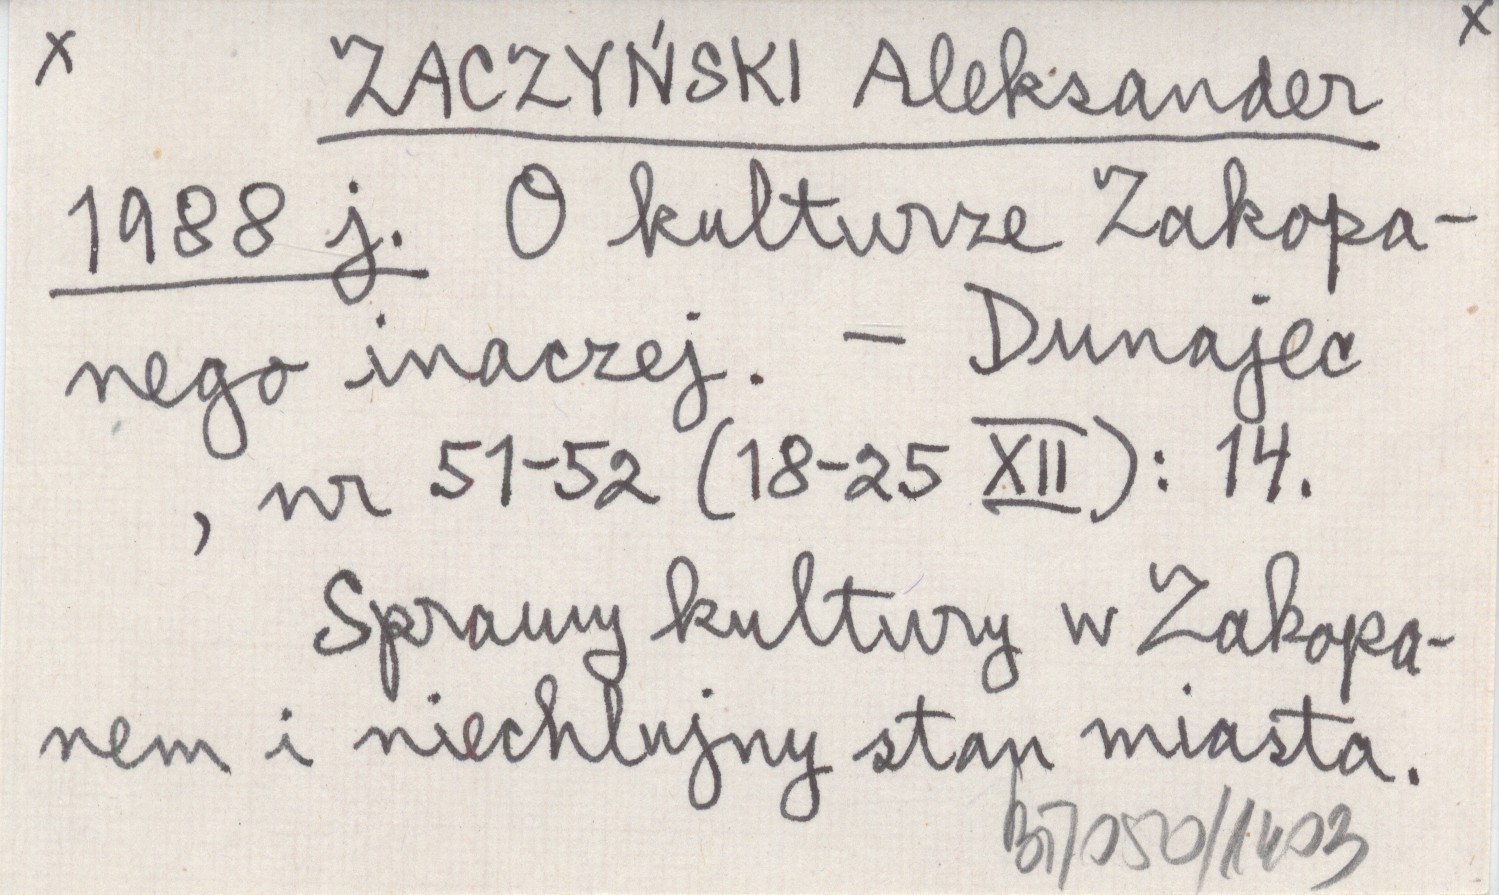 x ZACZYŃSKI Aleksander x
1988 j. O kulturze Zakopa-
nego inaczej. – Dunajec
, nr 51-52 (18-25 XII): 14.
Sprawy kultury w Zakopa-
nem i niechlujny stan miasta.